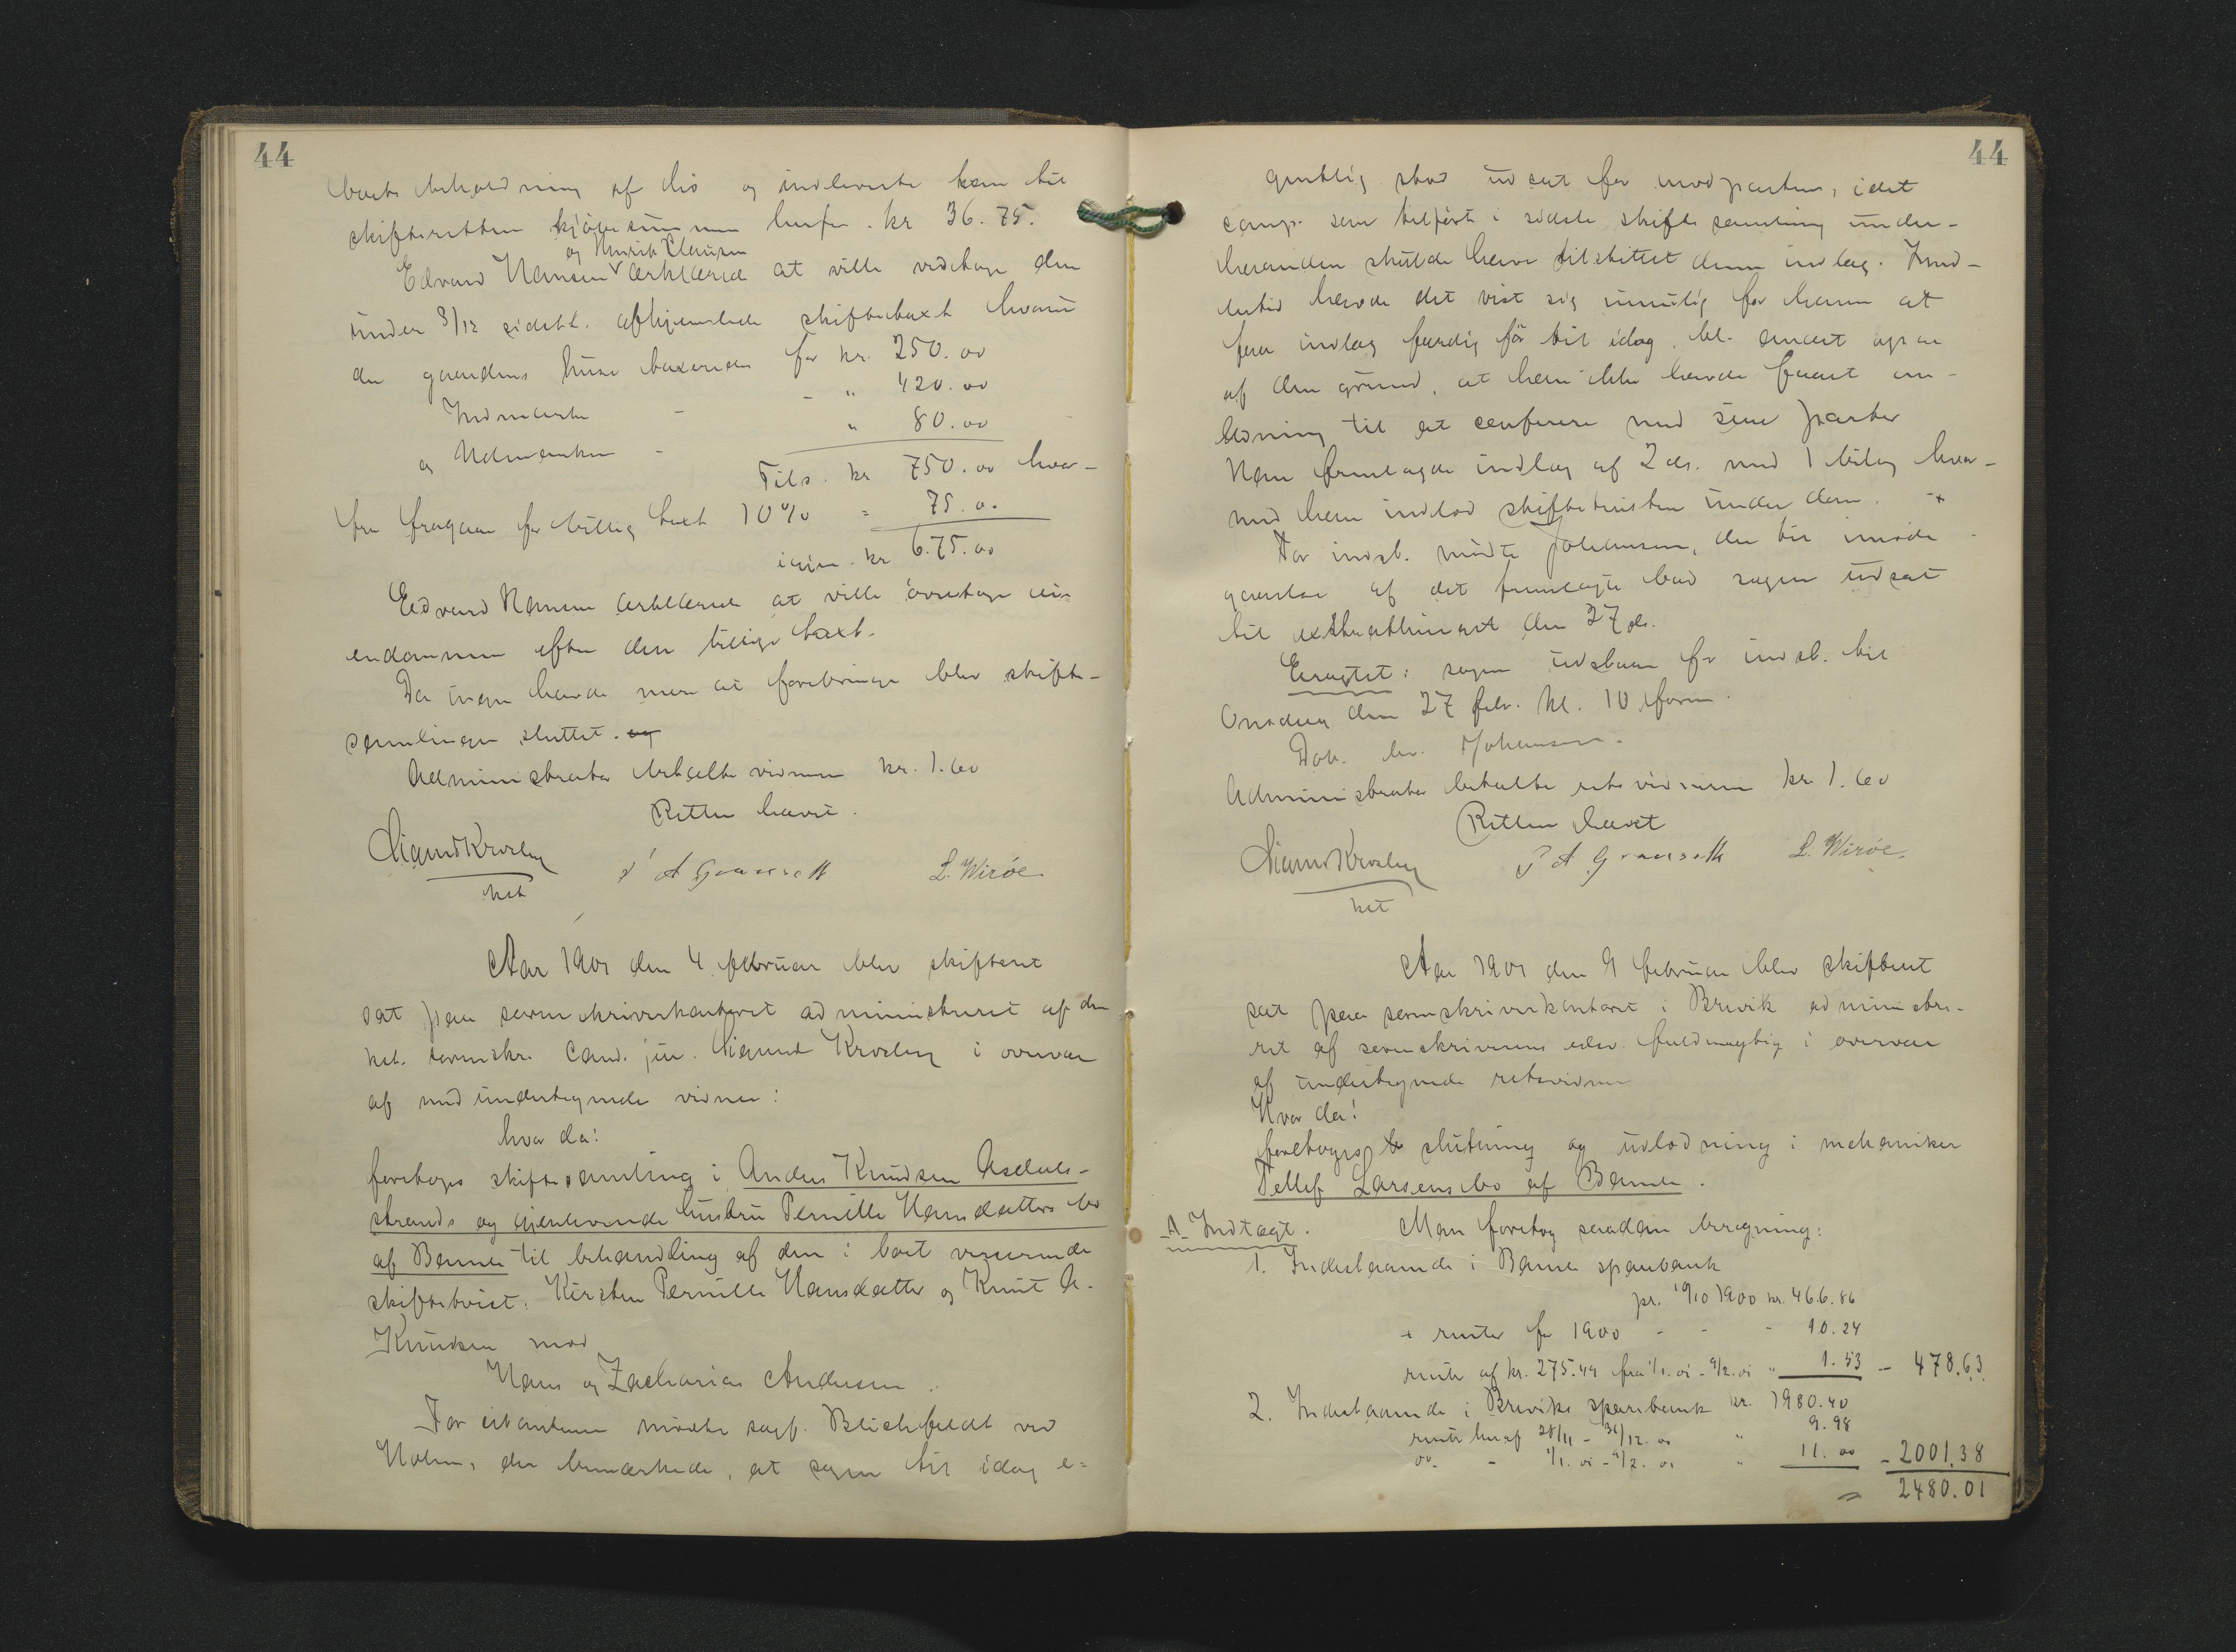 44
boets beholdning af hø og indleverte ham til
skifteretten kjøbesummen herfor kr 36.75.
og Henrik Clausen
Edvard Hansen erklærede at ville vedtage den
under 3/12 sidstl. afhjemlede skiftetaxt hvorved
der gaardens huse taxeredes for kr. 250.00
Indmarken - - " 420.00
og Udmarken - " 80.00
Tils. kr 750.00 hvor-
fra fragaar for billig taxt 10% = 75.00
igjen kr 675.00
Edvard Hansen erklærede at ville overtage ei-
endommen efter den billige taxt.
Da ingen havde mere at forebringe blev skifte-
samlingen sluttet. og
Administrator betalte vidnerne kr. 1.60
Retten hævet.
Sigurd Krosby
kst
P A Graaseth L. Wirøe
Aar 1901 den 4 februar blev skifteret
sat paa sorenskriverkontoret administreret af den
kst. sorenskr. Cand. jur. Sigurd Krosby i overvær
af medundertegnede vidner:
hvor da:
foretoges skiftesamling i Anders Knudsen Aseluls-
strands og gjenlevende hustru Pernille Hansdatters bo
af Bamle til behandling af den i boet verserende
skiftetvist: Kirsten Pernille Hansdatter og Knut A.
Knudsen mod
Hans og Zacharias Andersen.
For citanterne mødte sagf. Blichfeldt ved
Holm, der bemærkede, at sagen til idag e-
44
gentlig stod udsat for modparten, idet
comp. som tilført i sidste skiftesamling under-
haanden skulde have tilstillet denne indlæg. Imid-
lertid havde det vist sig umulig for ham at
faa indlæg færdig før til idag, bl. andet ogsaa
af den grund, at han ikke havde faaet an-
ledning til at conferere med sine parter
Han fremlagde indlæg af 2 ds. med 1 bilag hvor-
med han indlod skiftetvisten under dom.
For indst. mødte Johansen, der til imøde-
gaaelse af det fremlagte bad sagen udsat
til extrathinget den 27 ds.
Eragtet: sagen udstaar for indst. til
Onsdag den 27 febr. kl. 10 form.
Johansen.
Administrator betalte retsvidnerne kr 1.60
Retten hævet
Sigurd Krosby
kst
P A Graaseth L. Wirøe.
Aar 1901 den 9 februar blev skifteret
sat paa sorenskriverkontoret i Brevik administre-
ret af sorenskriverens edsv. fuldmægtig i overvær
af undertegnede retsvidner
Hvor da:
foretoges slutning og udlodning i mekaniker
Tellef Larsens bo af Bamle.
A Indtægt. Man foretog saadan beregning:
1. Indestaaende i Bamle sparebank
pr. 19/10 1900 kr. 466.86
+ renter for 1900 - - - 10.24
rente af kr. 275.49 fra 1/1.01 - 9/2.01 " 1.53 - 478.63
2. Indestaaende i Breviks sparebank kr. 1980.40
renter heraf 28/11 - 31/12.00 " 9.98
do. - 1/1.01 - 9/2.01 " 11.00 - 2001.38
= 2480.01